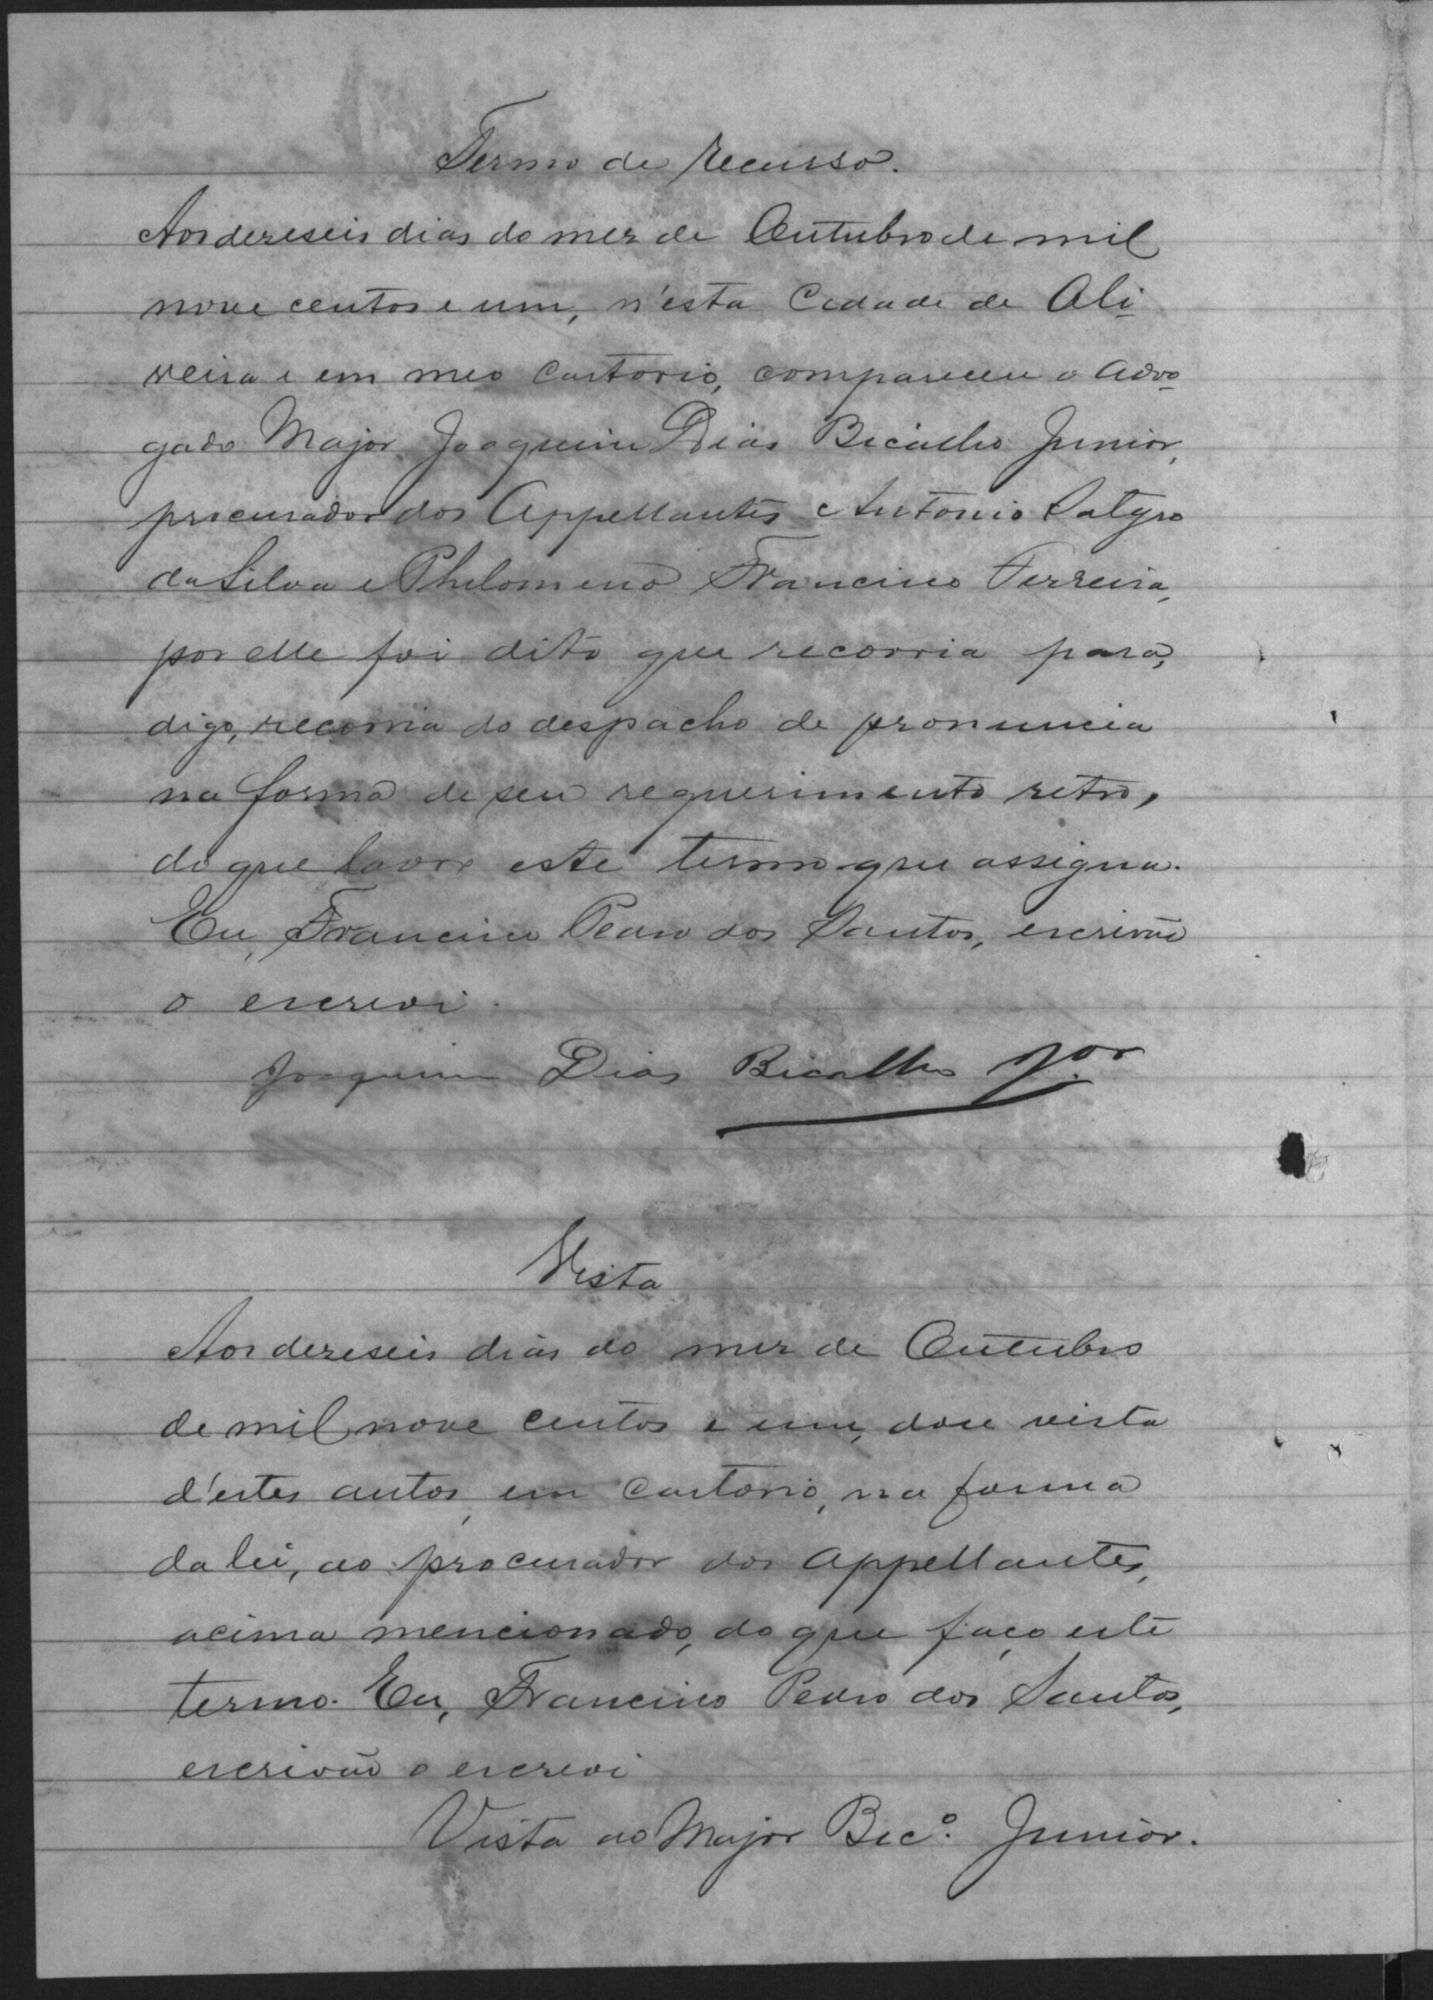 Termo de recurso.
Aos dezeseis dias do mez de Outubro de mil
nove centos e um, n'esta Cidade de Oli-
veira e em meo Cartorio, compareceu o Advo-
gado Major Joaquim Dias Bicalho Junior,
procurador dos Appellantes Antonio Satyro
da Silva e Philomeno Francisco Ferreira,
por elle foi dito que recorria para,
digo, recorria do despacho de pronuncia
na forma de seu requerimento retro,
do que lavro este termo que assigna.
Eu, Francisco Pedro dos Santos, escrivão
o escrevi.
Joaquim Dias Bicalho Jor
Vista
Aos dezeseis dias do mez de Outubro
de mil nove centos e um, dou vista
d'estes autos, em Cartorio, na forma
da lei, ao procurador dos Appellantes,
acima mencionado, do que faço este
termo. Eu, Francisco Pedro dos Santos,
escrivão o escrevi
Vista ao Major Bico. Junior.